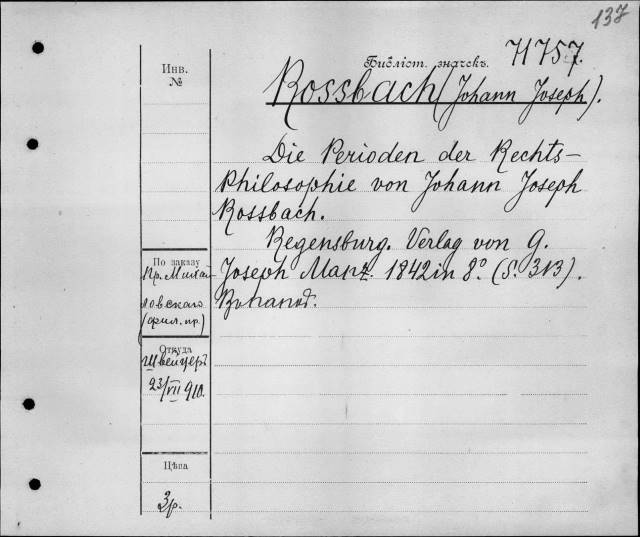 137
Библіот. значекъ. 71757.
Инв.
№
Rossbach (Johann Joseph).
Die Perioden der Rechts-
Philosophie von Johann Joseph
Rossbach.
Regensburg. Verlag von G.
Joseph Manz. 1842 in 8º. (S. 313).
По заказу
Пр. Михай-
ловскаго
(фил. пр.)
Откуда
Швейцеръ
23/VII 910.
Цѣна
3р.